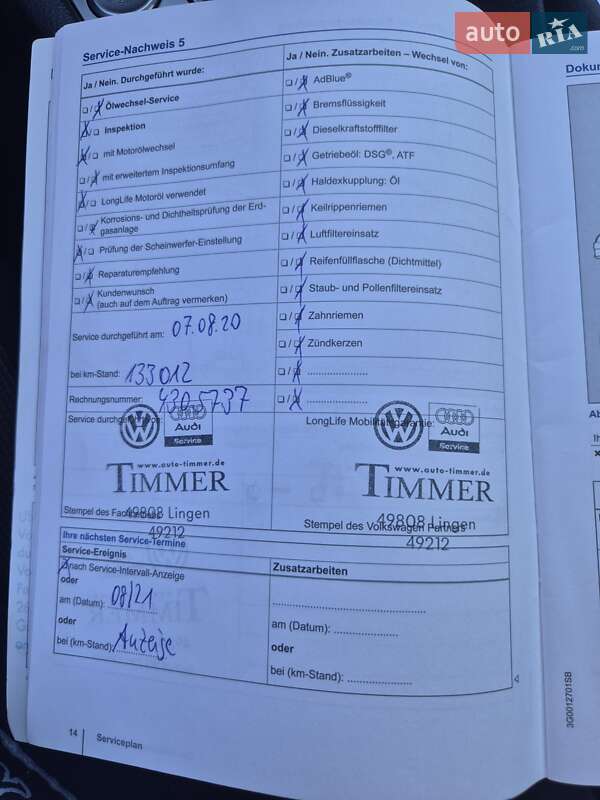 auto RIA .com
Service-Nachweis 5
Ja / Nein. Durchgeführt wurde:
❑ / ❑ Ölwechsel-Service
❑ / ❑ Inspektion
❑ / ❑ mit Motorölwechsel
❑ / ❑ mit erweitertem Inspektionsumfang
❑ / ❑ LongLife Motoröl verwendet
❑ / ❑ Korrosions- und Dichtheitsprüfung der Erd-
gasanlage
❑ / ❑ Prüfung der Scheinwerfer-Einstellung
❑ / ❑ Reparaturempfehlung
❑ / ❑ Kundenwunsch
(auch auf dem Auftrag vermerken)
Service durchgeführt am: 07.08.20
bei km-Stand: 133012
Rechnungsnummer: 4305737
Service durchgeführt von:
Ja / Nein. Zusatzarbeiten – Wechsel von:
❑ / ❑ AdBlue®
❑ / ❑ Bremsflüssigkeit
❑ / ❑ Dieselkraftstofffilter
❑ / ❑ Getriebeöl: DSG®, ATF
❑ / ❑ Haldexkupplung: Öl
❑ / ❑ Keilrippenriemen
❑ / ❑ Luftfiltereinsatz
❑ / ❑ Reifenfüllflasche (Dichtmittel)
❑ / ❑ Staub- und Pollenfiltereinsatz
❑ / ❑ Zahnriemen
❑ / ❑ Zündkerzen
❑ / ❑ ....................
❑ / ❑ ....................
LongLife Mobilitätsgarantie:
Audi
Service
www.auto-timmer.de
TIMMER
49808 Lingen
49212
Stempel des Fachbetriebs
Audi
Service
www.auto-timmer.de
TIMMER
49808 Lingen
49212
Stempel des Volkswagen Partners
Ihre nächsten Service-Termine
Service-Ereignis
❑ nach Service-Intervall-Anzeige
oder
am (Datum): 08/21
oder
bei (km-Stand): Anzeige
Zusatzarbeiten
..................................................
am (Datum): ....................
oder
bei (km-Stand): ....................
14
Serviceplan
Dokum
3G0012701SB